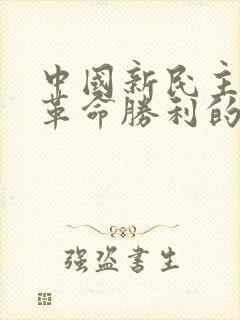 中國新民主
革命勝利的
强盗書生